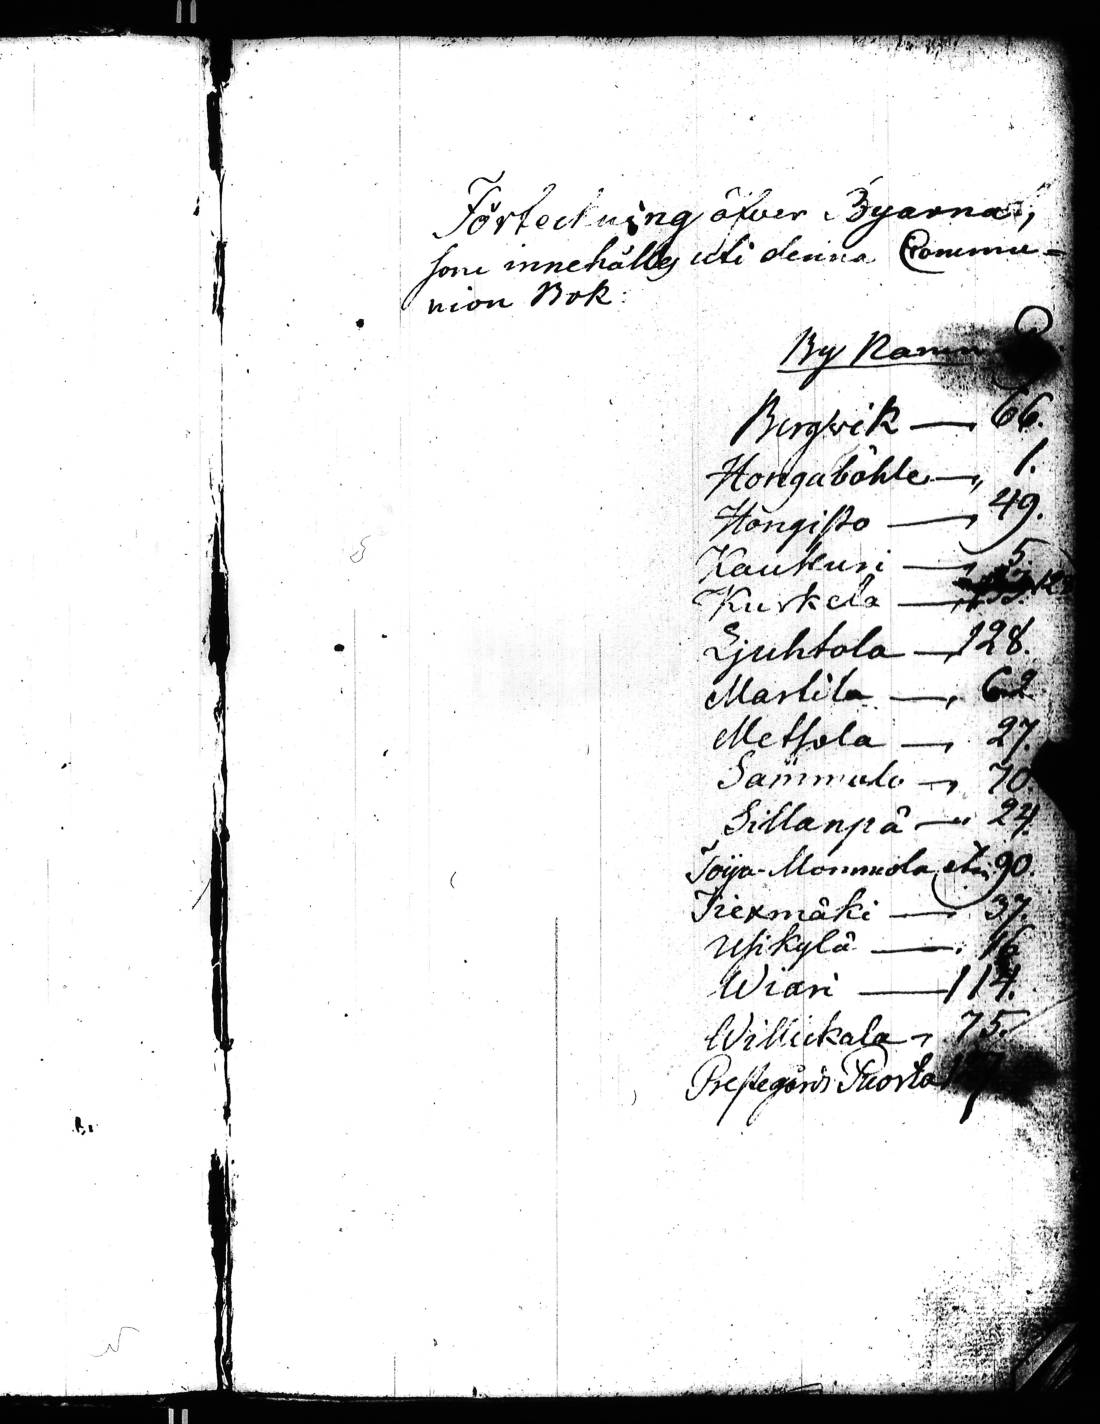 Förteckning öfver Byarna,
som innehålles uti denna Commu=
nion Bok:
By Namn
Bergwik — 66.
Hongaböhle — 1.
Hångisto — 49.
Kaukuri — 5.
Kurkela —
Ljuhtola — 128.
Martila — 62
Metsola — 27.
Sammalo — 70.
Sillanpä — 24.
Toija-Mommola 90.
Tiexmäki — 37.
Ylikylä — 16
Wiari — 114.
Willickala — 75.
Prestegårds